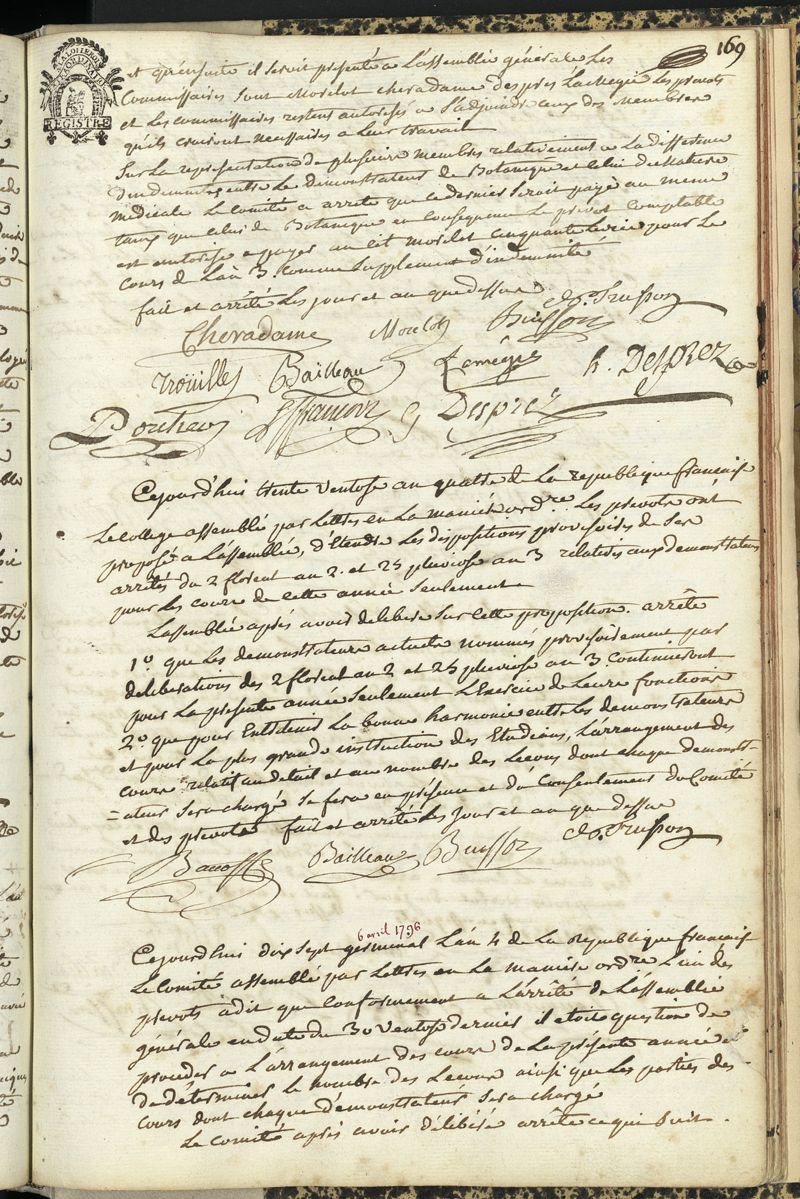 169
REGISTRE
et qu'ensuite il seroit presenté a L'assemblée générale Les
Commissaires sont Morelot cheradame despres Lamegie Les prevots
et Les commissaires restent autorisés a S'adjoindre ceux des membres
qu'ils croiront necessaires a Leur travail
Sur La representation de plusieurs membres relativement a La difference
d'indemnités entre Le demonstrateur de Botanique et celui de Matiere
medicale Le Comité a arrete que ce dernier seroit payé au meme
taux que celui de Botanique en consequence Le prevot Comptable
est autorisé a payer au cit morelot cinquante Livres pour Le
cours de L'an 3 comme Supplement d'indemnité
fait et arrêté Les jour et an que dessus
Cheradame Morelot Buisson Trusson
Trouilles Bailleau Lamégie h. Desprez
Boucher Despréz
Cejourd'hui trente ventose an quatre de La republique francaise
Le college assemblé par Lettres en La maniére ord.re Les prevots ont
proposé a L'assemblée, d'étendre Les dispositions provisoires de Ses
arrêtés du 2 floreal an 2. et 25 pluviose an 3 relatives aux demonstrateurs
pour Les cours de cette année seulement
L'assemblée aprés avoir deliberé sur cette proposition. arrête
1.o que Les demonstrateurs actuels nommés provisoirement par
deliberations des 2 floreal an 2 et 25 pluviose an 3 continueront
pour La presente année seulement L'Exercice de Leurs fonctions
2.o que pour Entretenir La bonne harmonie entre Les demonstrateurs
et pour La plus grande instruction des Etudians, L'arrangement des
cours relatif au detail et au nombre des Lecons dont chaque demonstr-
=ateur Sera chargé se fera en présence et du Consentement du Comité
et des prevots fait et arrêté Les jour et an que dessus
Bacoffe Bailleau Buisson Trusson
6 avril 1796
Cejourd'hui dix sept germinal L'an 4 de La Republique francaise
Le Comité assemblé par Lettres en La maniére ord.re L'un des
prevots a dit que Conformement a L'arrêté de L'assemblée
générale en date du 30 Ventose dernier il etoit question de
proceder a L'arrangement des cours de La présente année et
de déterminer Le nombre des Lecons ainsi que Les parties des
cours dont chaque démonstrateur Sera chargé
Le Comité aprés avoir déliberé arrête ce qui Suit.